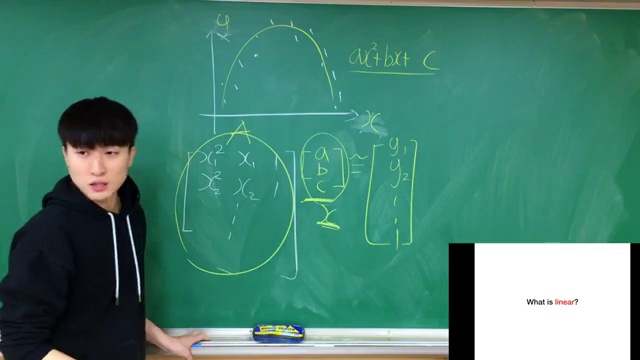 y
ax²+bx+ c
x
A
x₁² x₁ 1 a ≈ y₁
x₂² x₂ 1 b y₂
c
x
What is linear?